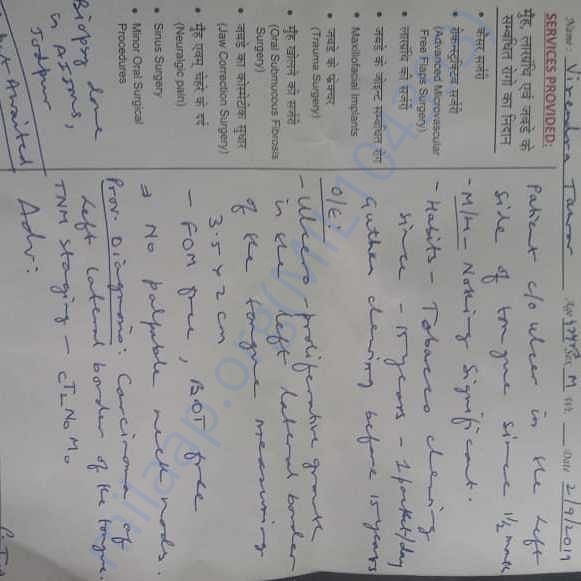 Name: Virendra Tanwar Age 47Yr Sex M Date 2/9/2019
SERVICES PROVIDED:
मुँह, लारग्रंथि एवं जबड़े के
सम्बन्धित रोगों का निदान
• कैंसर सर्जरी
(Advanced Microvascular
Free Flaps Surgery)
• लारग्रंथि की सर्जरी
• जबड़े के जोइन्ट सम्बन्धित रोग
• Maxillofacial Implants
• जबड़े के फ्रेक्चर
(Trauma Surgery)
• मुँह खोलने की सर्जरी
(Oral Submucous Fibrosis
Surgery)
• जबड़े का कॉस्मेटिक सुधार
(Jaw Correction Surgery)
• मुँह एवम् चेहरे के दर्द
(Neuralgic pain)
• Sinus Surgery
• Minor Oral Surgical
Procedures
Biopsy done
in AIIMS,
Jodhpur
Awaited
Patient c/o ulcer in the left
side of tongue since 1½ month
- M/H - Nothing significant.
- Habits - Tobacco chewing
since - 15 years - 1 packet/day
Gutkha chewing before 15 years
O/E:
- Ulcero-proliferative growth
in the left lateral border
of the tongue measuring
3.5 x 2 cm
- FOM free, BOT free
⇒ No palpable neck nodes.
Prov. Diagnosis: Carcinoma of
left lateral border of the tongue.
TNM staging - cT2N0M0
Adv:
milaap.org